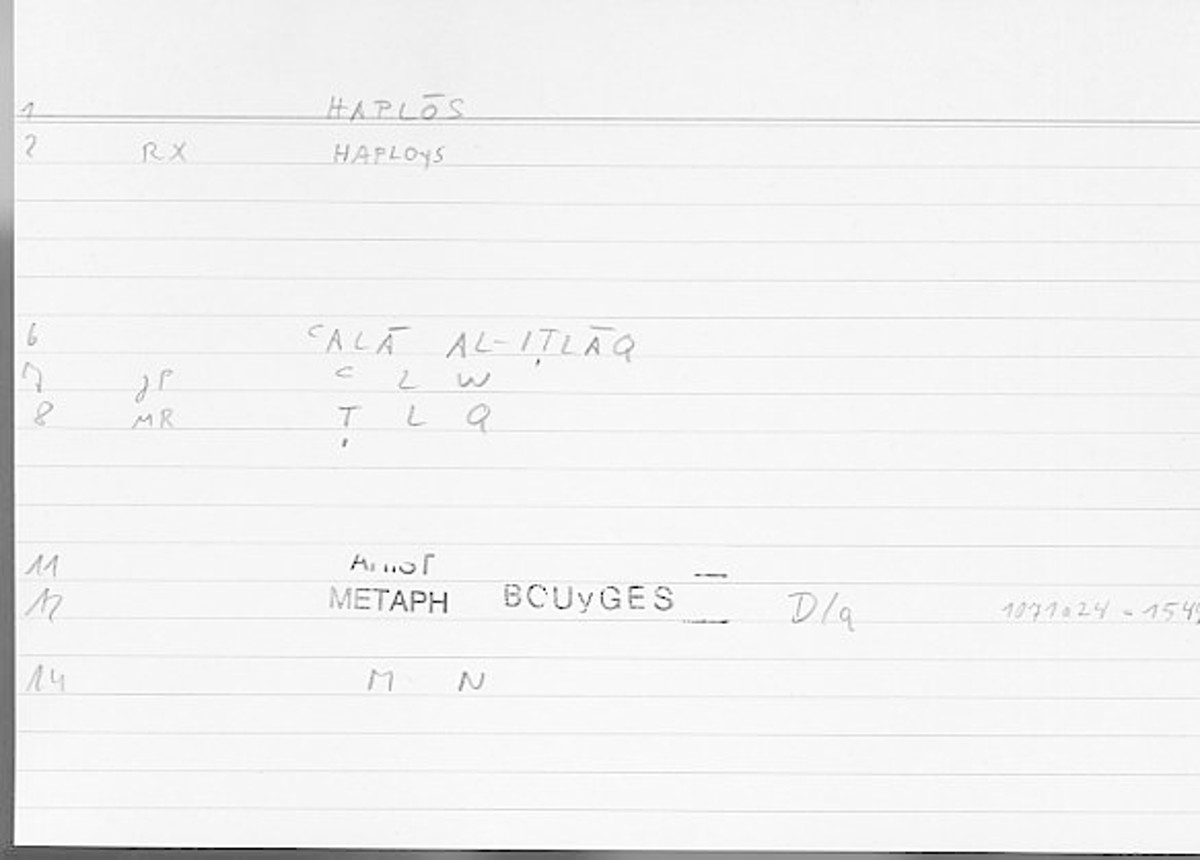 1 HAPLŌS
2 RX HAPLOyS
6 ᶜALĀ AL-IṬLĀQ
7 JP ᶜ L W
8 MR Ṭ L Q
11 Arist
12 METAPH BOUyGES D/q 1071a24 - 154
14 M N